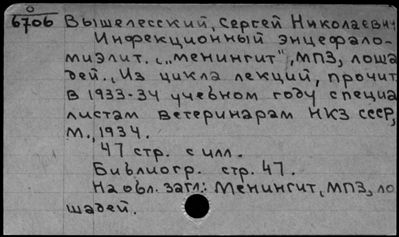 О
6706 Вышелесский, Сергей Николаевич
Инфекционный энцефало-
миэлит. („менингит", МПЗ, лоша
дей. (Из цикла лекций, прочит
в 1933-34 учебном году специа
листам ветеринарам НКЗ СССР,
М., 1934.
47 стр. с илл.
Библиогр. стр. 47.
На обл. загл.: Менингит, МПЗ, ло
шадей.